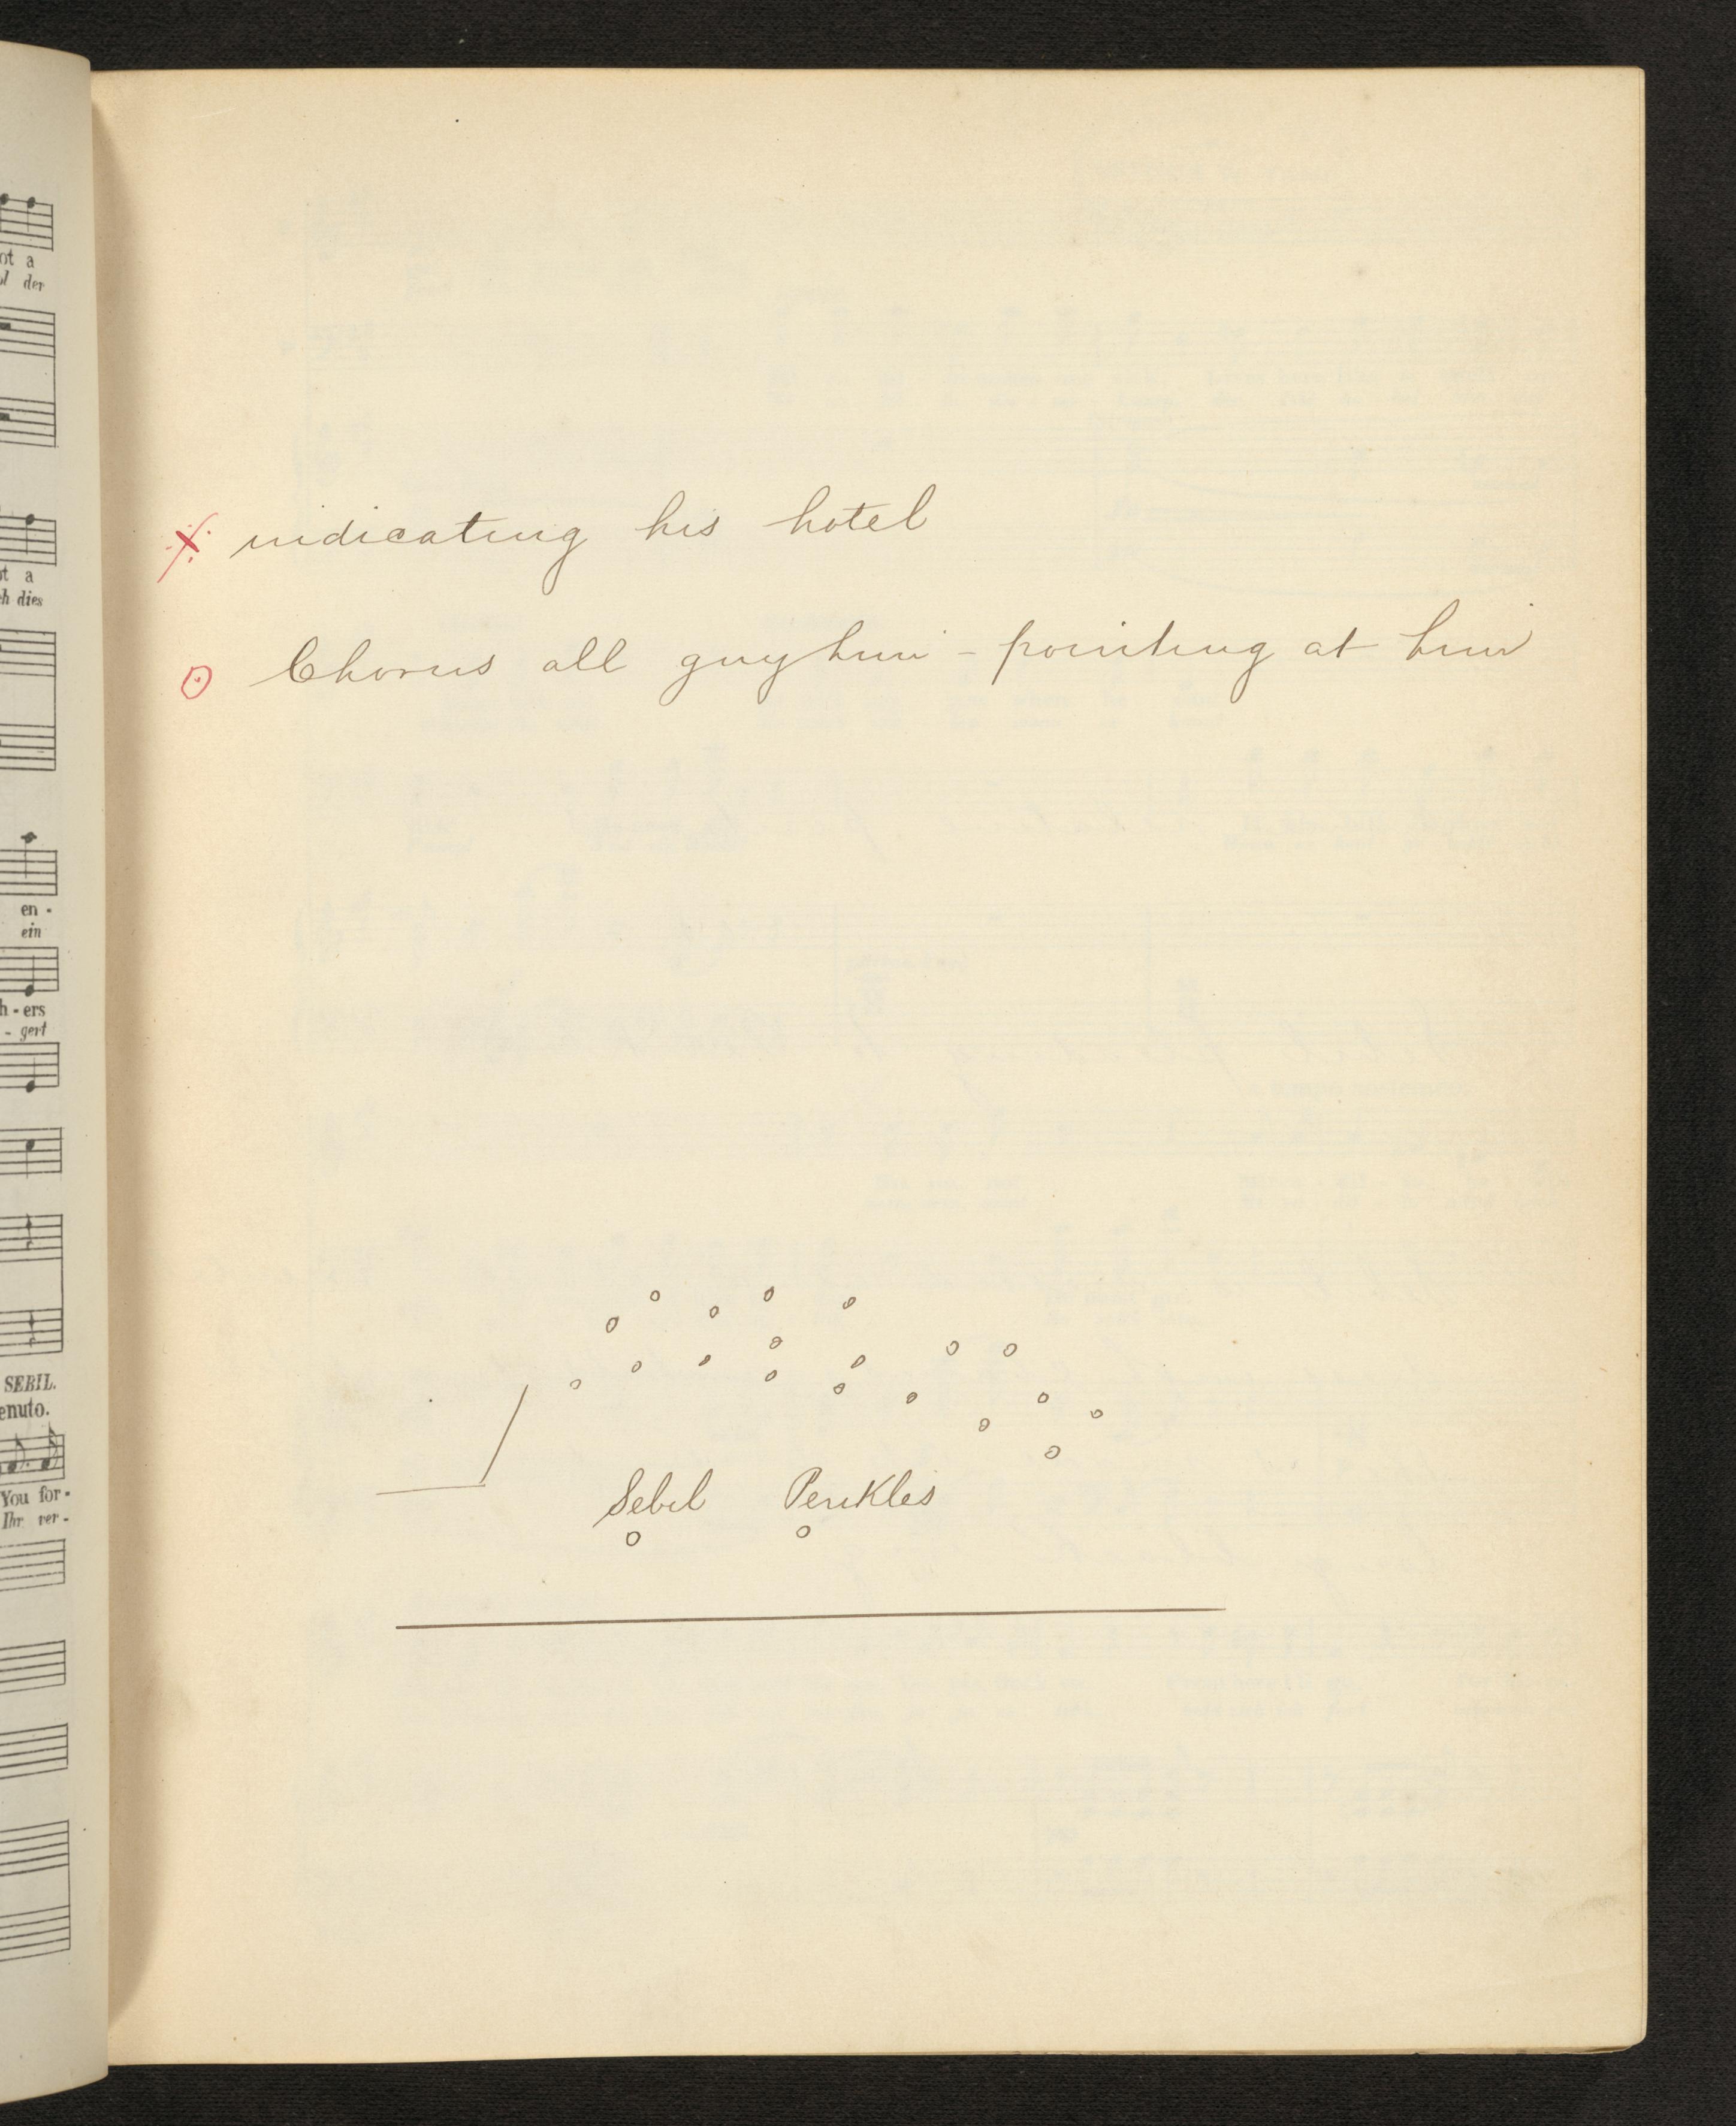 ot a
der
ot a
ch dies
en -
ein
h - ers
- gert
SEBIL.
enuto.
You for -
Ihr ver -
indicating his hotel
Chorus all guy him - pointing at him
Sebil Perikles